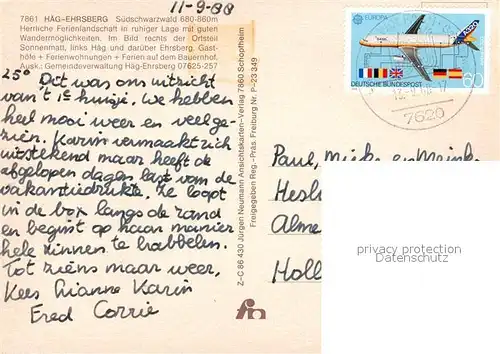 11-9-88
7861 HÄG-EHRSBERG Südschwarzwald 680-860m
Herrliche Ferienlandschaft in ruhiger Lage mit guten
Wandermöglichkeiten. Im Bild rechts der Ortsteil
Sonnenmatt, links Häg und darüber Ehrsberg. Gast-
höfe + Ferienwohnungen + Ferien auf dem Bauernhof.
Ausk.: Gemeindeverwaltung Häg-Ehrsberg 07625-257
25°
Dit was ons uitzicht
van't 1e huisje. We hebben
heel mooi weer en veel ge-
zien. Karin vermaakt zich
uitstekend maar heeft de
afgelopen dagen last van de
vakantiedrukte. Ze loopt
in de box langs de rand
en begint op haar manier
hele zinnen te babbelen.
Tot ziens maar weer,
Kees Dianne Karin
Fred Corrie
Z-C 86 430 Jürgen Neumann Ansichtskarten-Verlag 7860 Schopfheim
Freigegeben Reg.-Präs. Freiburg Nr. P-23 349
EUROPA
A320
DEUTSCHE BUNDESPOST
60
7620
Paul, Mieke en
Hesl
Alme
Holl
privacy protection
Datenschutz